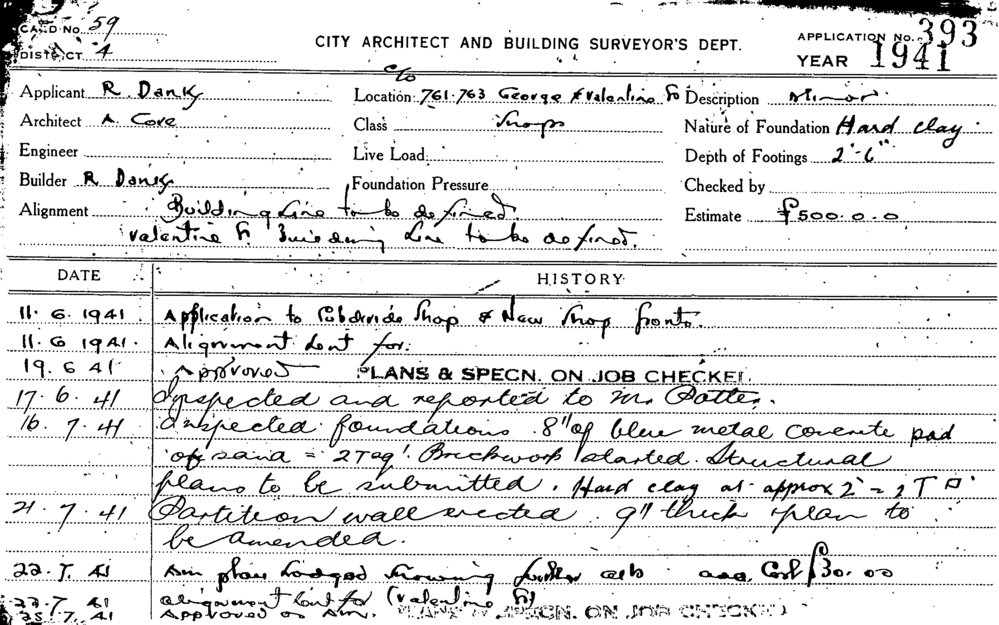 CARD No. 59
DISTRICT 4
CITY ARCHITECT AND BUILDING SURVEYOR'S DEPT.
APPLICATION No. 393
YEAR 1941
Applicant R. Danks
c/o
Location 761.763 George & Valentine St
Description Minor
Architect A. Core
Class Shops
Nature of Foundation Hard clay.
Engineer
Live Load
Depth of Footings 2'-6"
Builder R Danks
Foundation Pressure
Checked by
Alignment Building Line to be defined.
Estimate £500.0.0
Valentine St. Building Line to be defined.
DATE
HISTORY
11.6.1941 Application to Subdivide Shop & New Shop fronts.
11.6 1941. Alignment sent for.
19.6 41 Approved PLANS & SPECN. ON JOB CHECKED.
17.6.41 Inspected and reported to Mr Potter.
16.7.41 Inspected foundations 8" of blue metal concrete pad
of sand = 2T sq'. Brickwork started. Structural
plans to be submitted. Hard clay at approx 2' = 2T
21.7.41 Partition wall erected 9" thick plan to
be amended.
22.7.41 Am plan Lodged Showing further add. Cost £30.00
22.7.41 alignment sent for (Valentine St)
25.7.41 Approved as Am. PLANS & SPECN. ON JOB CHECKED